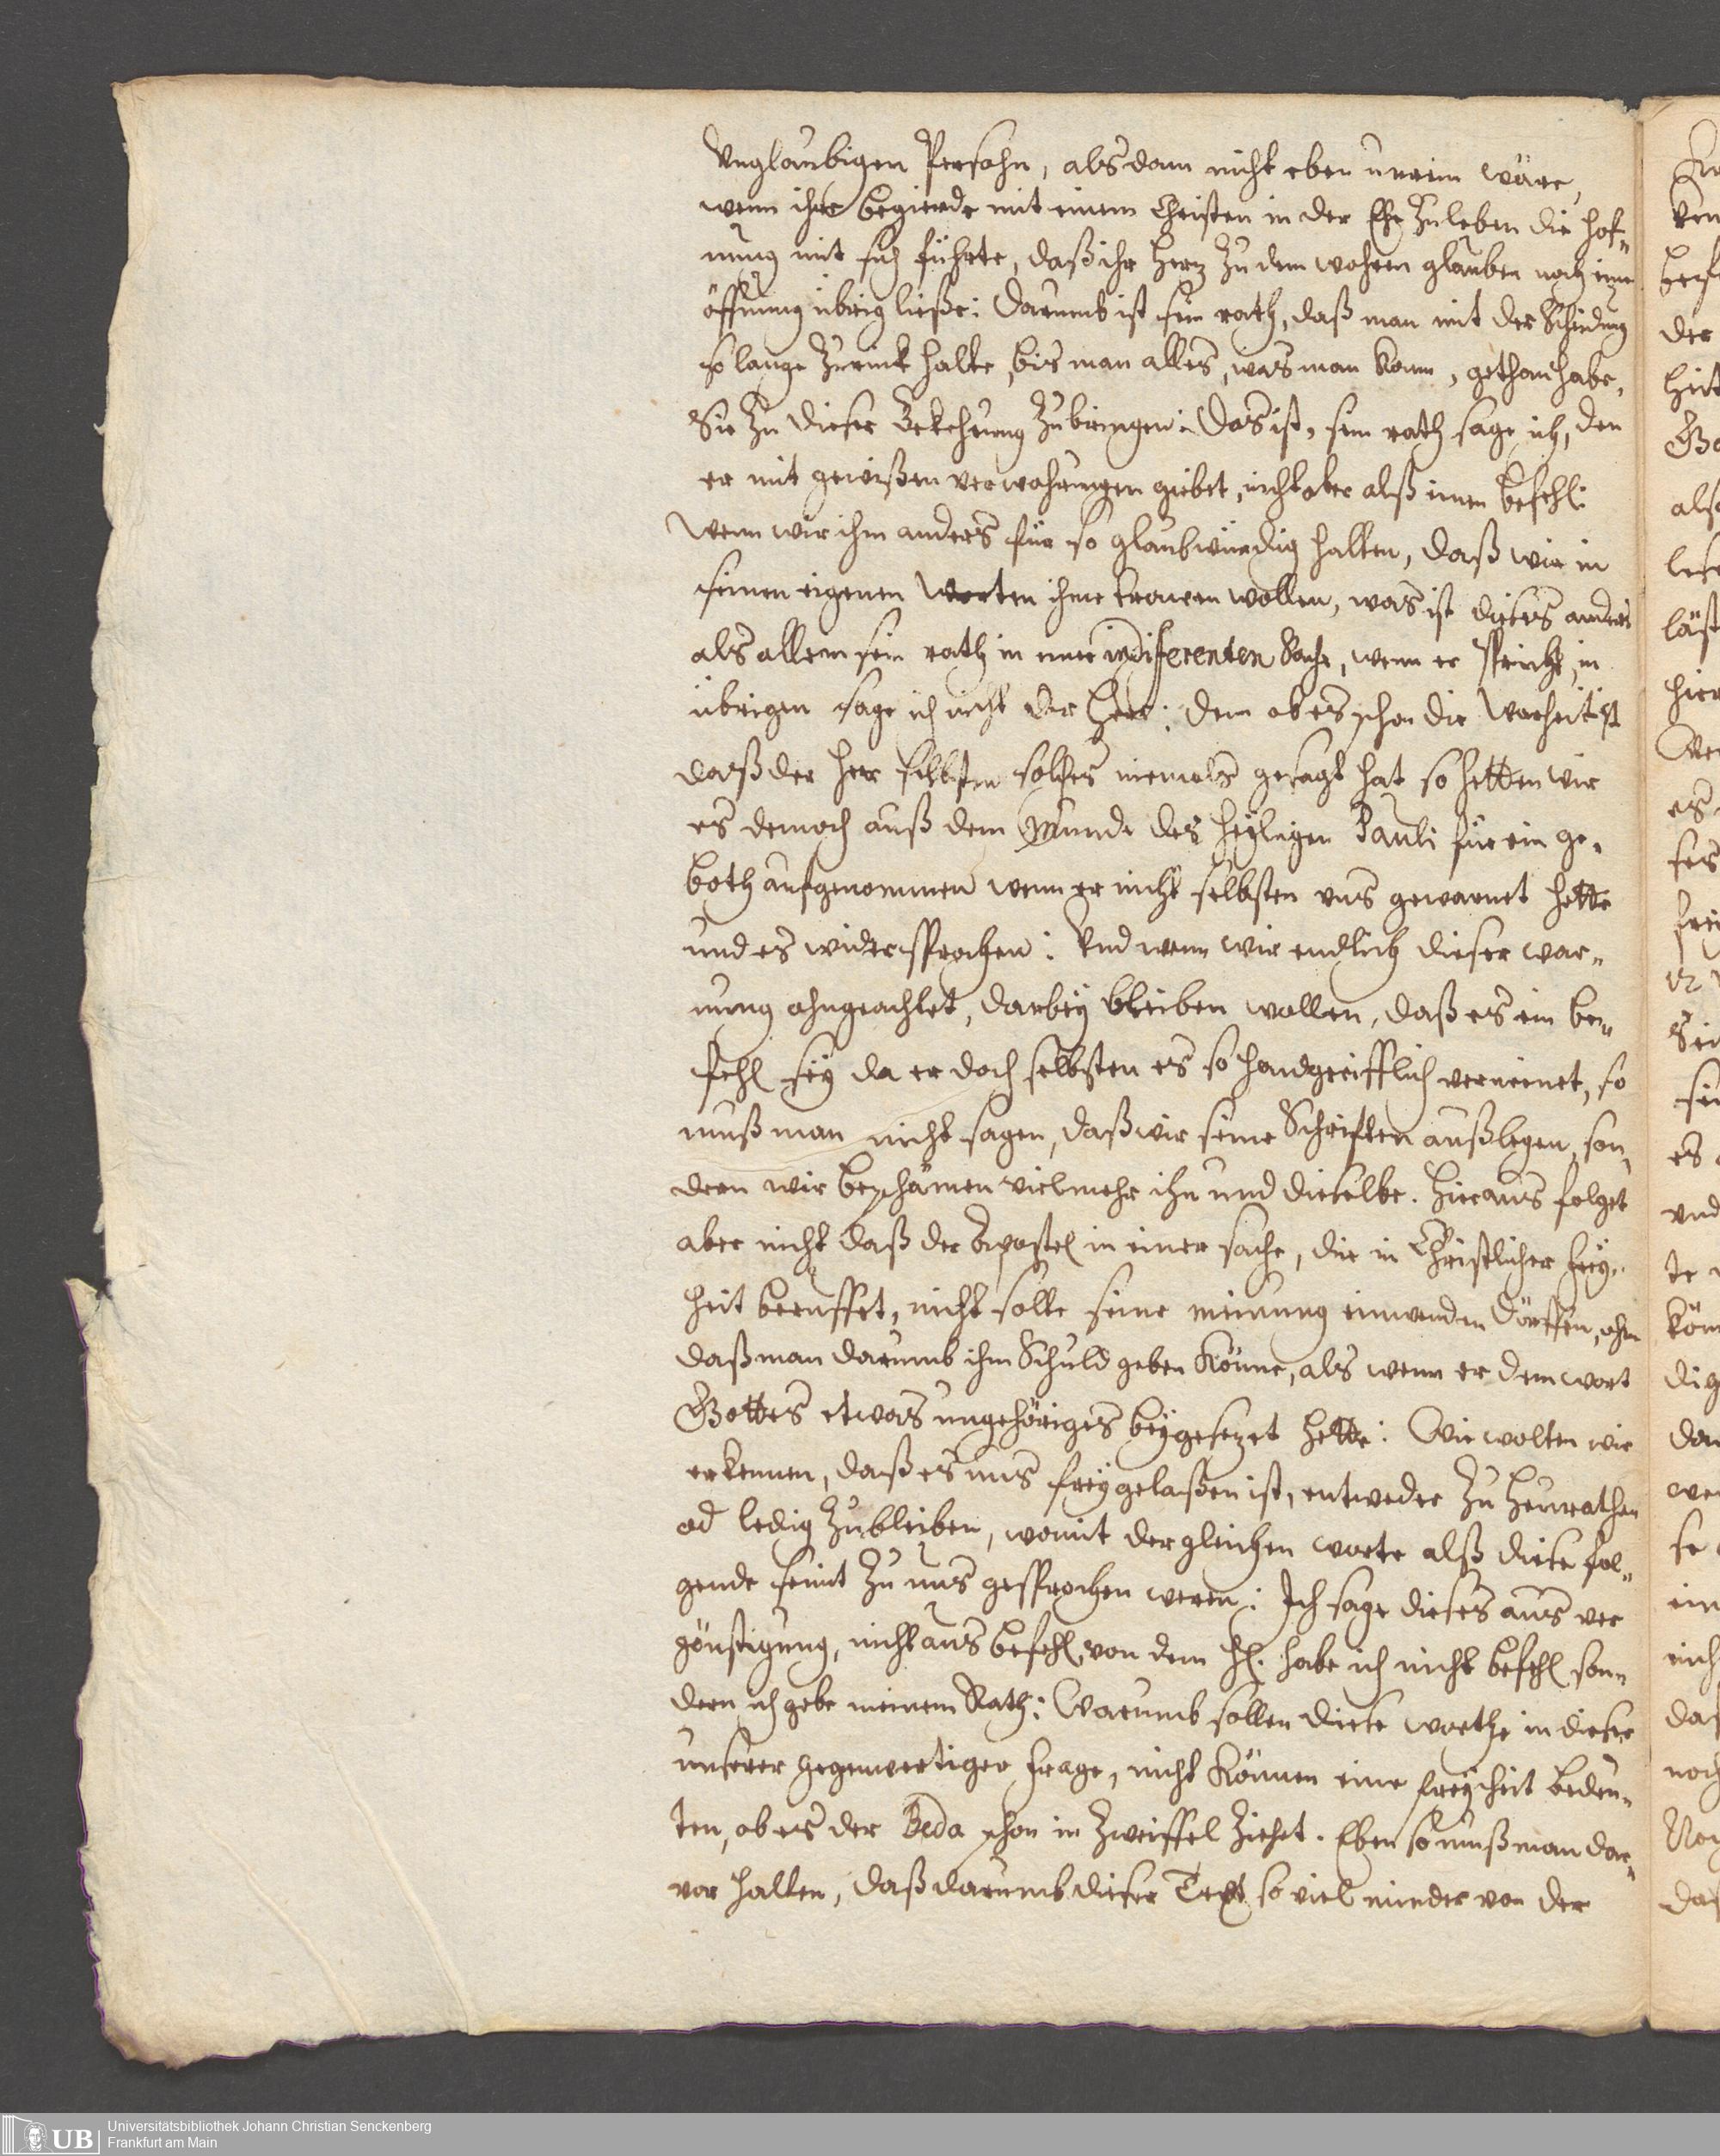 Unglaubigen Persohn, alsdann nicht eben unrein wäre,
wenn ihre begierde mit einem Christen in der Ehe zu leben die hof„
nung mit sich führte, daß ihr Herz zu dem wahren glauben noch eine
öffnung übrig ließe: Darumb ist sein rath, daß man mit der Scheidung
so lange zurück halte, bis man alles, was man kann, gethan habe,
Sie zu dieser Bekehrung zu bringen: Das ist, sein rath sage ich, den
er mit gewißen verwahrungen giebet, nicht aber alß einen befehl:
Wenn wir ihn anders für so glaubwürdig halten, daß wir in
seinen eigenen Worten ihme trauen wollen, was ist dieses anders
als allein sein rath in einer indiferenten Sache, wenn er spricht, in
übrigen sage ich nicht der Herr: denn ob es schon die Warheit ist
daß der Herr selbsten solches niemals gesagt hat so hetten wir
es dennoch auß dem Munde des heyligen Pauli für ein ge„
both aufgenommen wenn er nicht selbsten uns gewarnet hette
und es widersprochen: Und wenn wir endlich dieser war„
nung ohngeachtet, darbey bleiben wollen, daß es ein be„
fehl sey da er doch selbsten es so handgreifflich verneinet, so
muß man nicht sagen, daß wir seine Schriften außlegen, son„
dern wir beschämen vielmehr ihn und dieselbe. Hieraus folget
aber nicht daß der Apostel in einer sache, die in Christlicher frey„
heit beruhet, nicht solte seine meinung einwenden dörffen, ohne
daß man darumb ihm Schuld geben könne, als wenn er dem wort
Gottes etwas ungehöriges beygesezet hette: Wie wolten wir
erkennen, daß es uns frey gelaßen ist, entweder zu heurathen
od ledig zu bleiben, womit dergleichen worte alß diese fol„
gende seint zu uns gesprochen weren: Ich sage dieses aus ver
günstigung, nicht aus befehl, von dem H. habe ich nicht befehl son„
dern ich gebe meinen Rath: Warumb sollen diese worthe in dieser
unserer gegenwertiger frage, nicht können eine freyheit bedeu„
ten, ob es der Beda schon in zweiffel ziehet. Eben so muß man dar„
vor halten, daß darumb dieser Text so viel minder von der